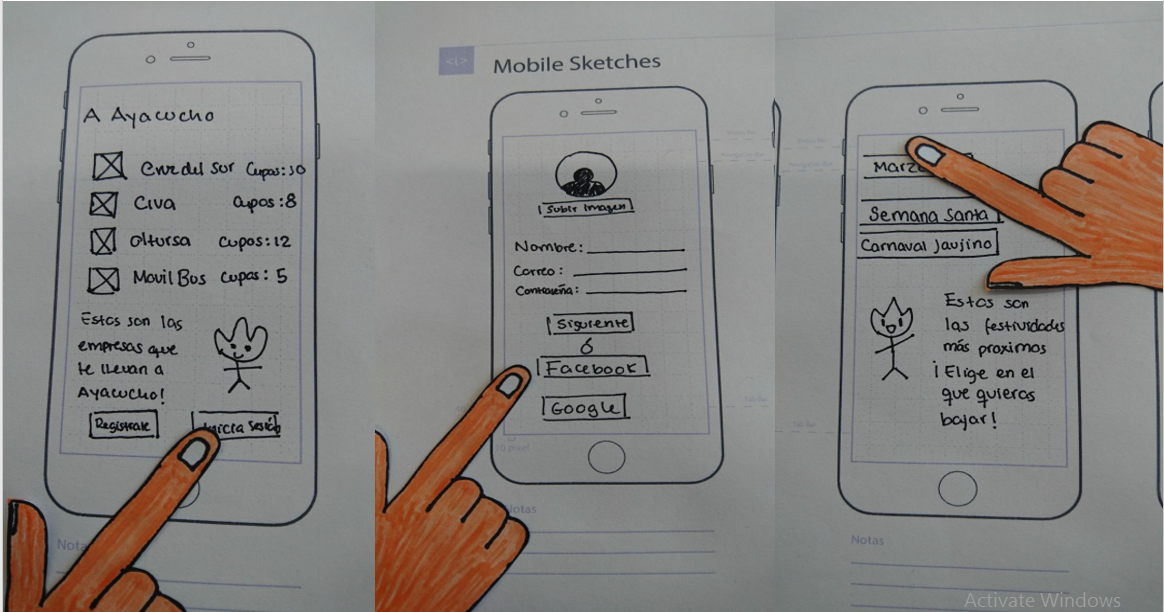 A Ayacucho
Cruz del Sur Cupos:10
Civa Cupos:8
Oltursa Cupos:12
Movil Bus Cupos: 5
Estas son las
empresas que
te llevan a
Ayacucho!
Regístrate
Inicia Sesión
Notas
<i>
Mobile Sketches
Subir Imagen
Nombre:
Correo:
Contraseña:
Siguiente
ó
Facebook
Google
Notas
Marzo
Semana Santa
Carnaval Jaujino
Estas son
las festividades
más proximas
¡Elige en el
que quieras
bajar!
Notas
Activate Windows